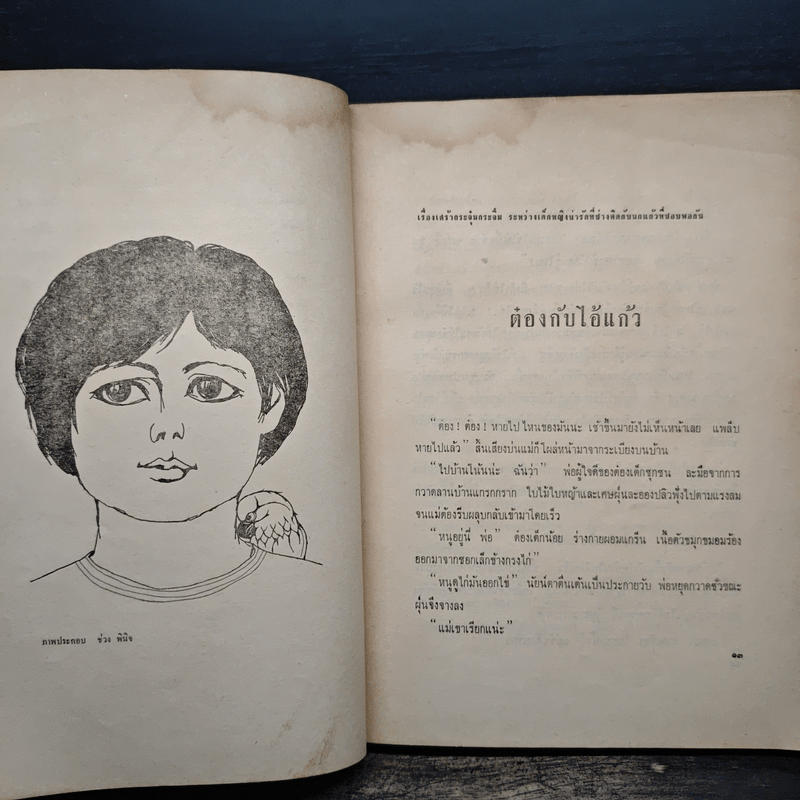 ภาพประกอบ ช่วง พินิจ
เรื่องเศร้ากระจุ๋มกระจิ๋ม ระหว่างเด็กหญิงน่ารักที่ช่างคิดกับนกแก้วที่ชอบพอกัน
ต๋องกับไอ้แก้ว
“ต๋อง! ต๋อง! หายไปไหนของมันนะ เช้าขึ้นมายังไม่เห็นหน้าเลย แพล็บ
หายไปแล้ว” สิ้นเสียงบ่นแม่ก็โผล่หน้ามาจากระเบียงบนบ้าน
“ไปบ้านโน้นน่ะ ฉันว่า” พ่อผู้ใจดีของต๋องเด็กซุกซน ละมือจากการ
กวาดลานบ้านแกรกกราก ใบไม้ใบหญ้าและเศษฝุ่นละอองปลิวฟุ้งไปตามแรงลม
จนแม่ต้องรีบผลุบกลับเข้ามาโดยเร็ว
“หนูอยู่นี่ พ่อ” ต๋องเด็กน้อย ร่างกายผอมแกร็น เนื้อตัวขมุกขมอมร้อง
ออกมาจากซอกเล็กข้างกรงไก่
“หนูดูไก่มันออกไข่” นัยน์ตาตื่นเต้นเป็นประกายวับ พ่อหยุดกวาดชั่วขณะ
ฝุ่นจึงจางลง
“แม่เขาเรียกแน่ะ”
๑๓